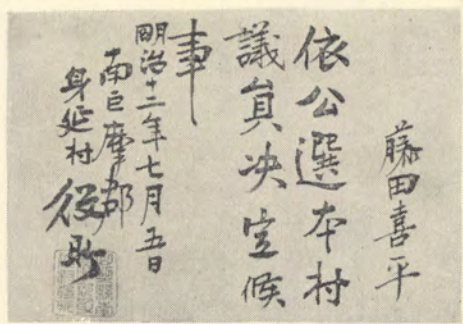 藤田喜平
依公選本村
議員决定候
事
明治十二年七月五日
南巨摩郡
身延村
役所